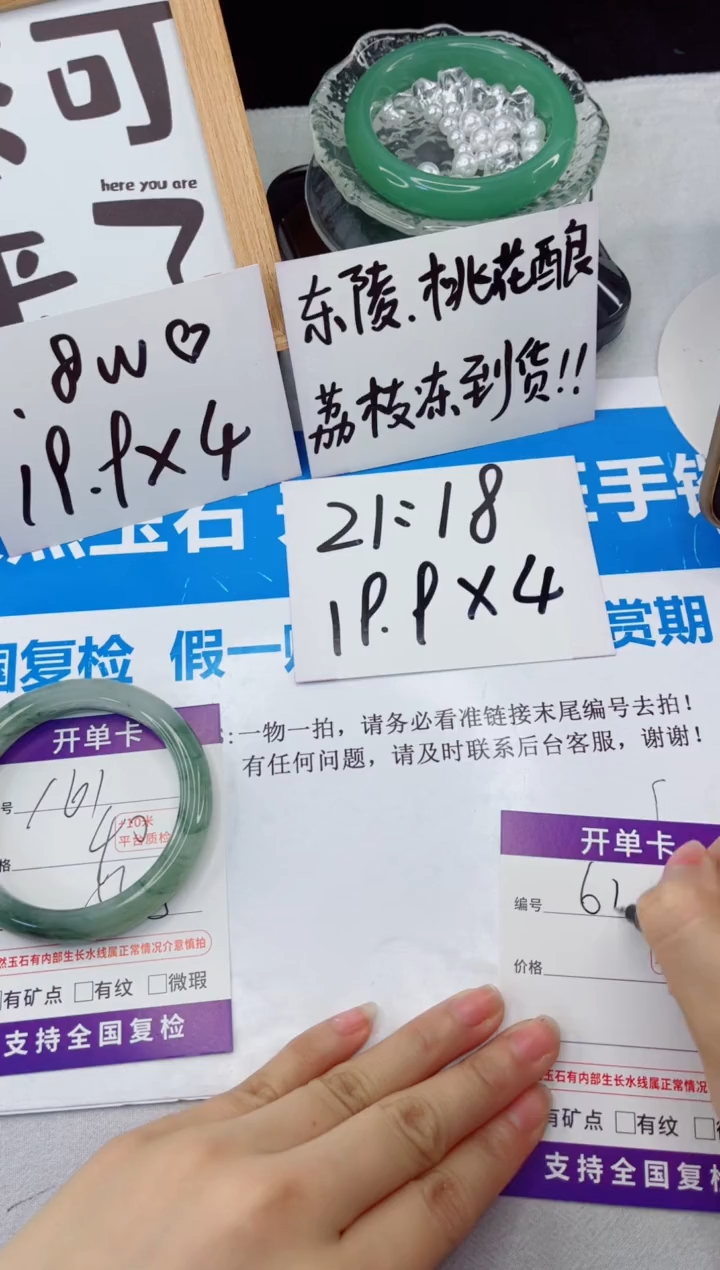 可
here you are
来了
.8w♡
19.9×4
东陵.桃花酿
荔枝冻到货!!
21:18
19.9×4
玉石
手镯
国复检 假一
赏期
:一物一拍，请务必看准链接末尾编号去拍！
有任何问题，请及时联系后台客服，谢谢！
开单卡
号 161
+10米
平台质检
格 40
然玉石有内部生长水线属正常情况介意慎拍
有矿点 □有纹 □微瑕
支持全国复检
开单卡
编号 61
价格
玉石有内部生长水线属正常情况
有矿点 □有纹
支持全国复检